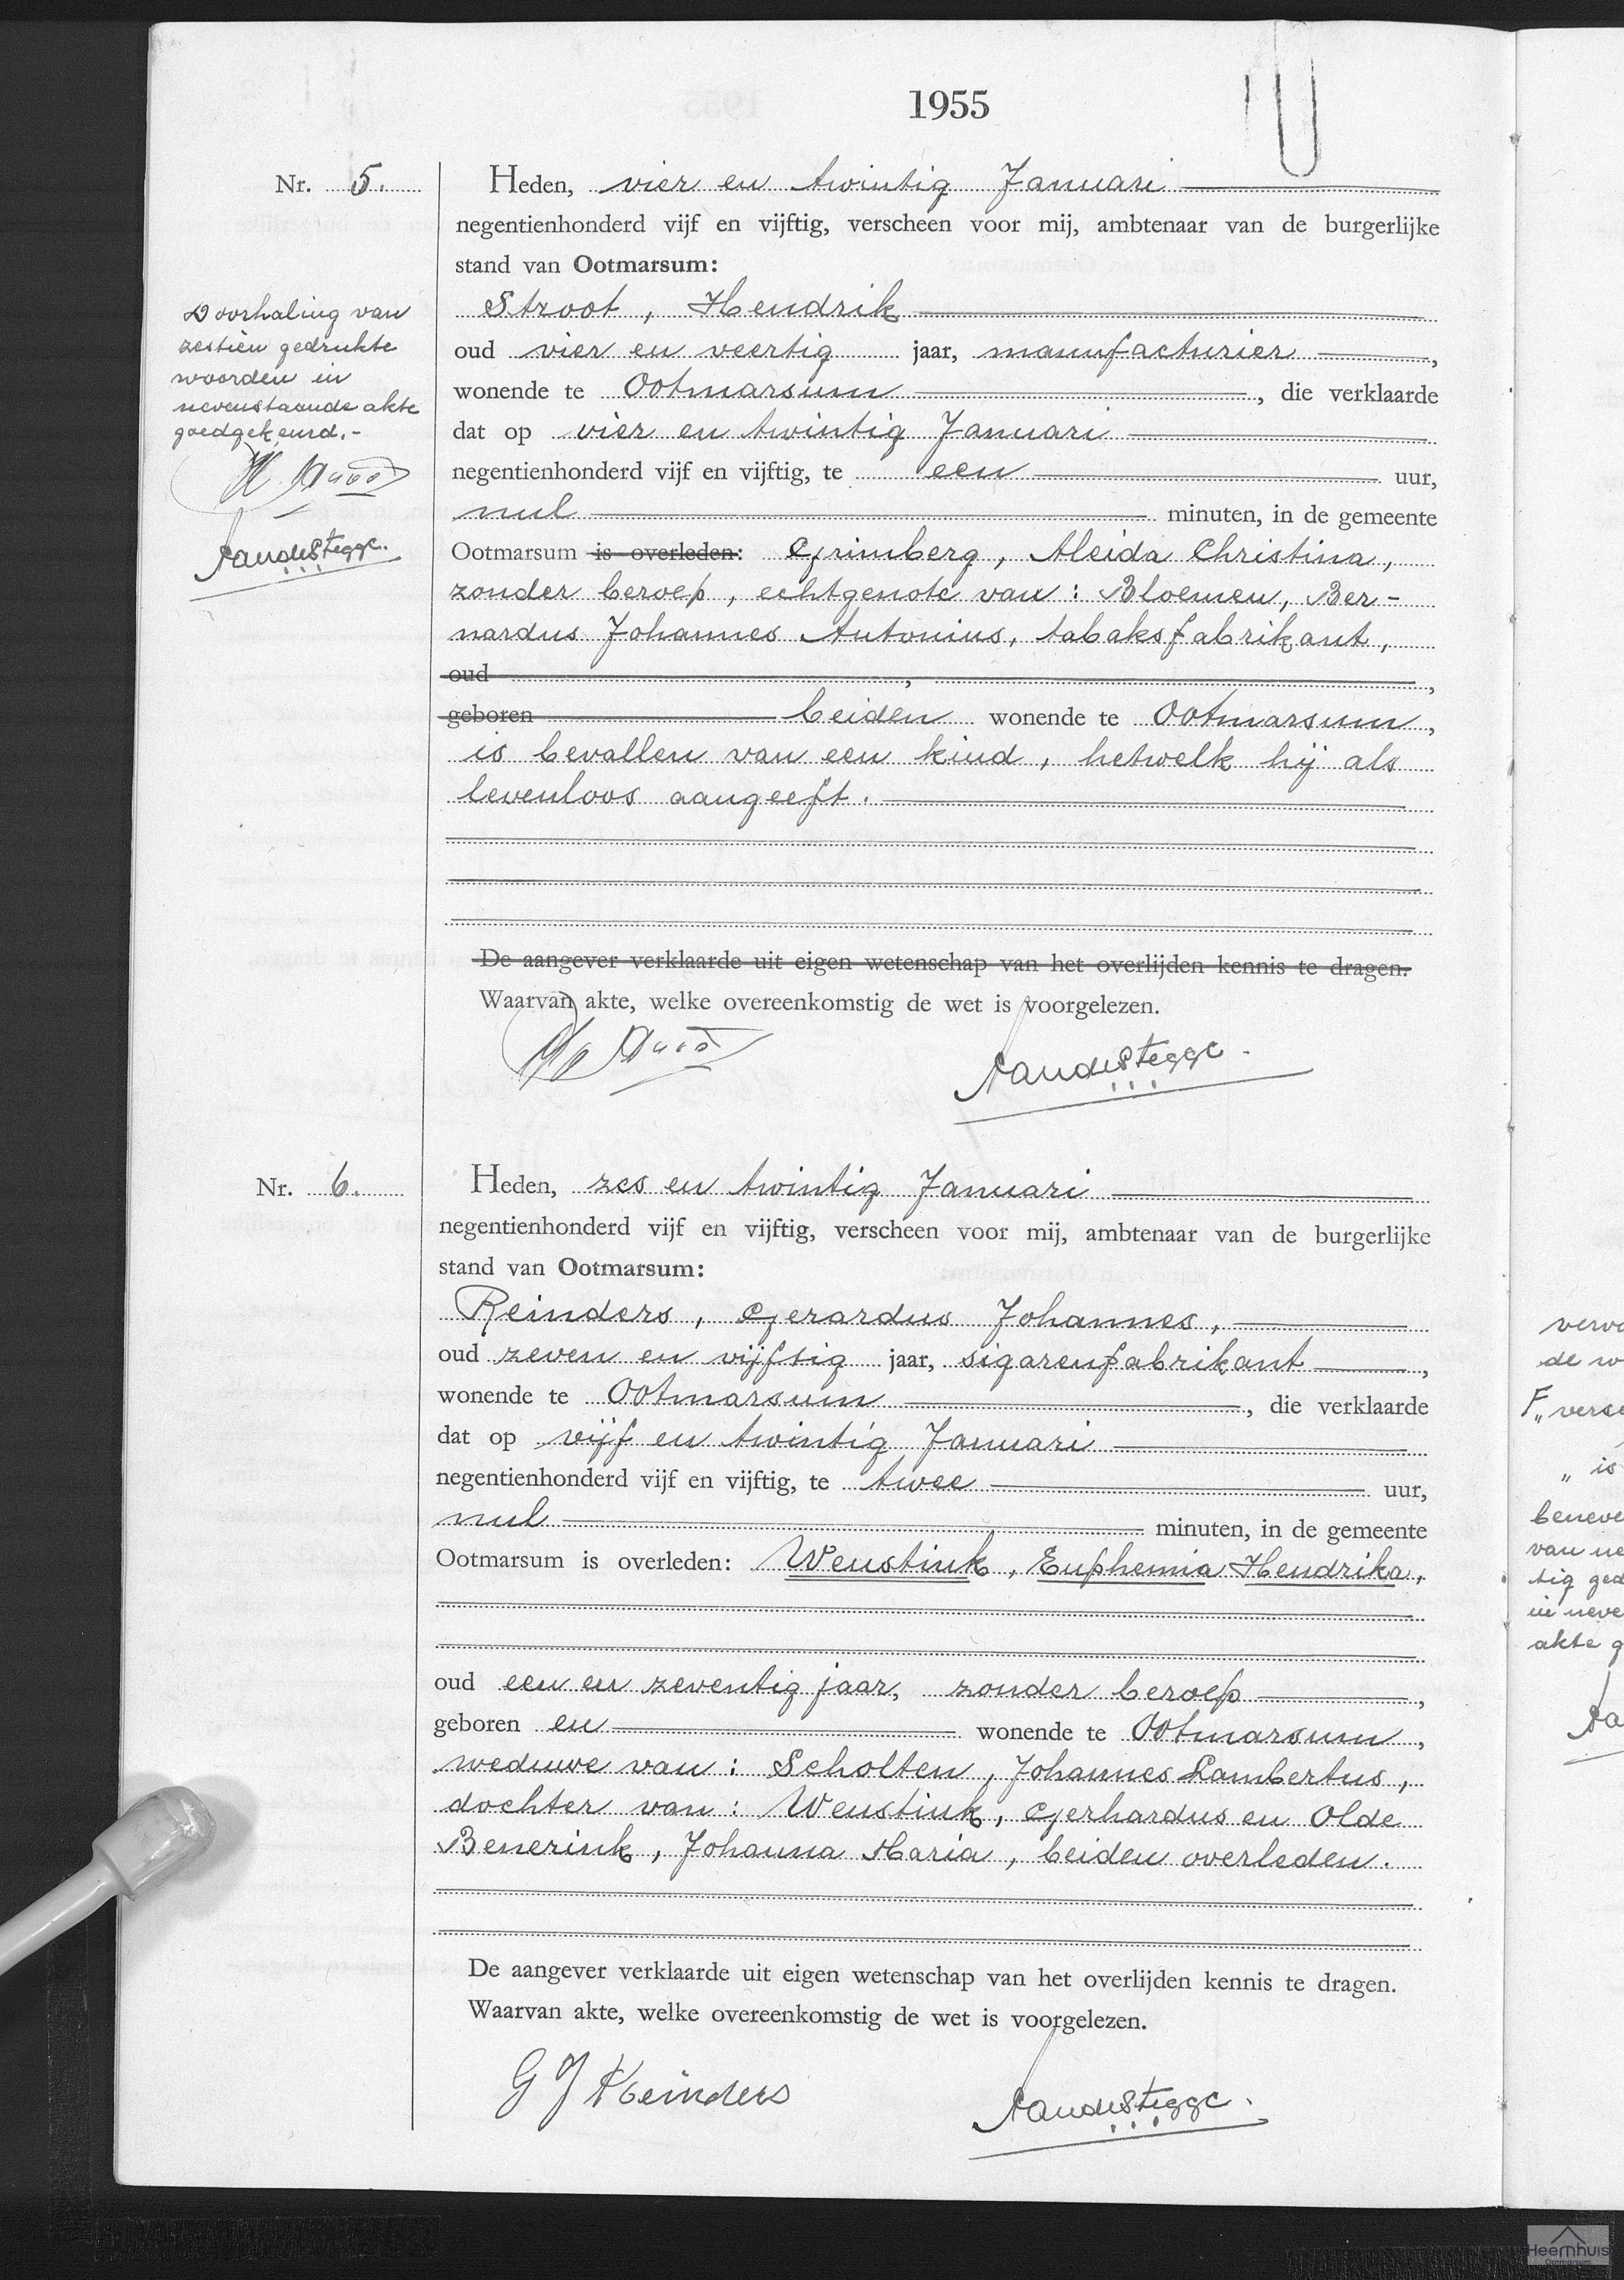 1955
Nr. 5.
Heden, vier en twintig Januari
negentienhonderd vijf en vijftig, verscheen voor mij, ambtenaar van de burgerlijke
stand van Ootmarsum:
Stroot, Hendrik
oud vier en veertig jaar, manufacturier,
wonende te Ootmarsum, die verklaarde
dat op vier en twintig Januari
negentienhonderd vijf en vijftig, te een uur,
nul minuten, in de gemeente
Ootmarsum is overleden: Grimberg, Aleida Christina,
zonder beroep, echtgenote van: Bloemen, Ber-
nardus Johannes Antonius, tabaksfabrikant,
oud , ,
geboren beiden wonende te Ootmarsum,
is bevallen van een kind, hetwelk hij als
levenloos aangeeft.
De aangever verklaarde uit eigen wetenschap van het overlijden kennis te dragen.
Waarvan akte, welke overeenkomstig de wet is voorgelezen.
AandeStegge.
Doorhaling van
zestien gedrukte
woorden in
nevenstaande akte
goedgekeurd.-
AandeStegge.
Nr. 6.
Heden, zes en twintig Januari
negentienhonderd vijf en vijftig, verscheen voor mij, ambtenaar van de burgerlijke
stand van Ootmarsum:
Reinders, Gerardus Johannes,
oud zeven en vijftig jaar, sigarenfabrikant,
wonende te Ootmarsum, die verklaarde
dat op vijf en twintig Januari
negentienhonderd vijf en vijftig, te twee uur,
nul minuten, in de gemeente
Ootmarsum is overleden: Weustink, Euphemia Hendrika,
oud een en zeventig jaar, zonder beroep,
geboren en wonende te Ootmarsum,
weduwe van: Scholten, Johannes Lambertus,
dochter van: Weustink, Gerhardus en Olde
Benerink, Johanna Maria, beiden overleden.
De aangever verklaarde uit eigen wetenschap van het overlijden kennis te dragen.
Waarvan akte, welke overeenkomstig de wet is voorgelezen.
G J Reinders
AandeStegge.
de w
F„ verse
„ is
beneve
van ne
tig ged
in neve
akte g
Aa
Heemhuis
Ootmarsum